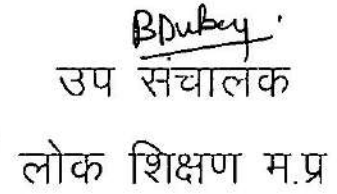 BDubey
उप संचालक
लोक शिक्षण म.प्र